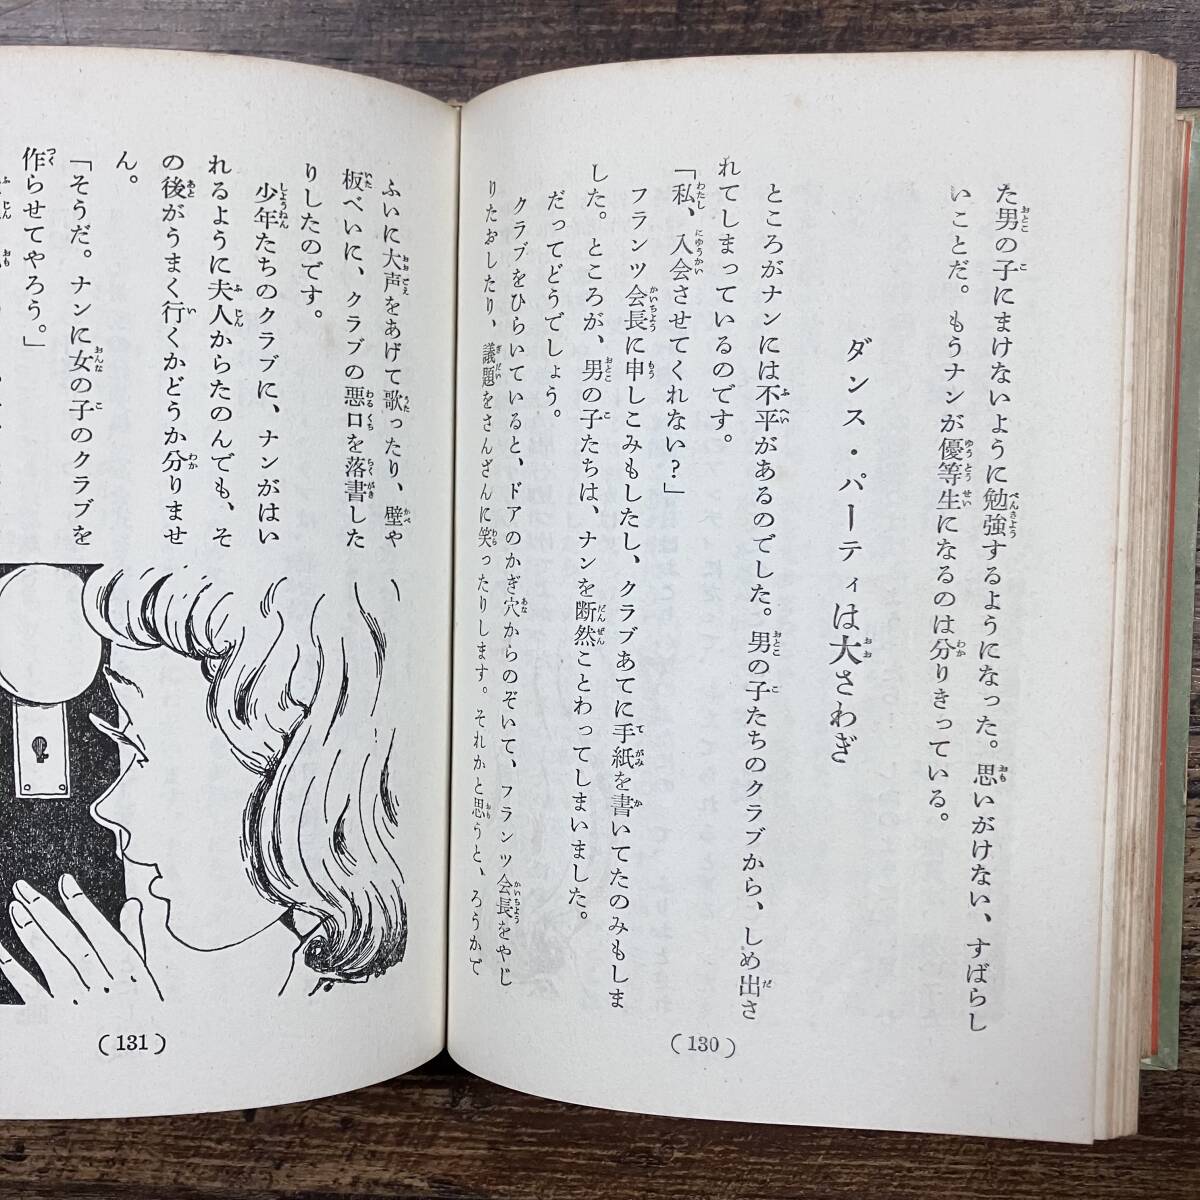 た男の子にまけないように勉強するようになった。思いがけない、すばらし
いことだ。もうナンが優等生になるのは分りきっている。
ダンス・パーティは大さわぎ
ところがナンには不平があるのでした。男の子たちのクラブから、しめ出さ
れてしまっているのです。
「私、入会させてくれない?」
フランツ会長に申しこみもしたし、クラブあてに手紙を書いてたのみもしま
した。ところが、男の子たちは、ナンを断然ことわってしまいました。
だってどうでしょう。
クラブをひらいていると、ドアのかぎ穴からのぞいて、フランツ会長をやじ
りたおしたり、議題をさんざんに笑ったりします。それかと思うと、ろうかで
(130)
ふいに大声をあげて歌ったり、壁や
板べいに、クラブの悪口を落書した
りしたのです。
少年たちのクラブに、ナンがはい
れるように夫人からたのんでも、そ
の後がうまく行くかどうか分りませ
ん。
「そうだ。ナンに女の子のクラブを
作らせてやろう。」
(131)